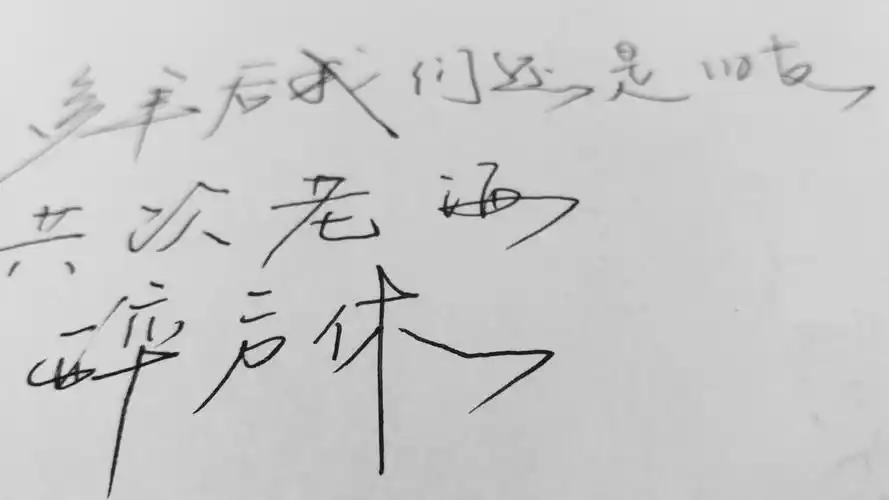 多年后我们还是川友
共饮老酒
醉后休